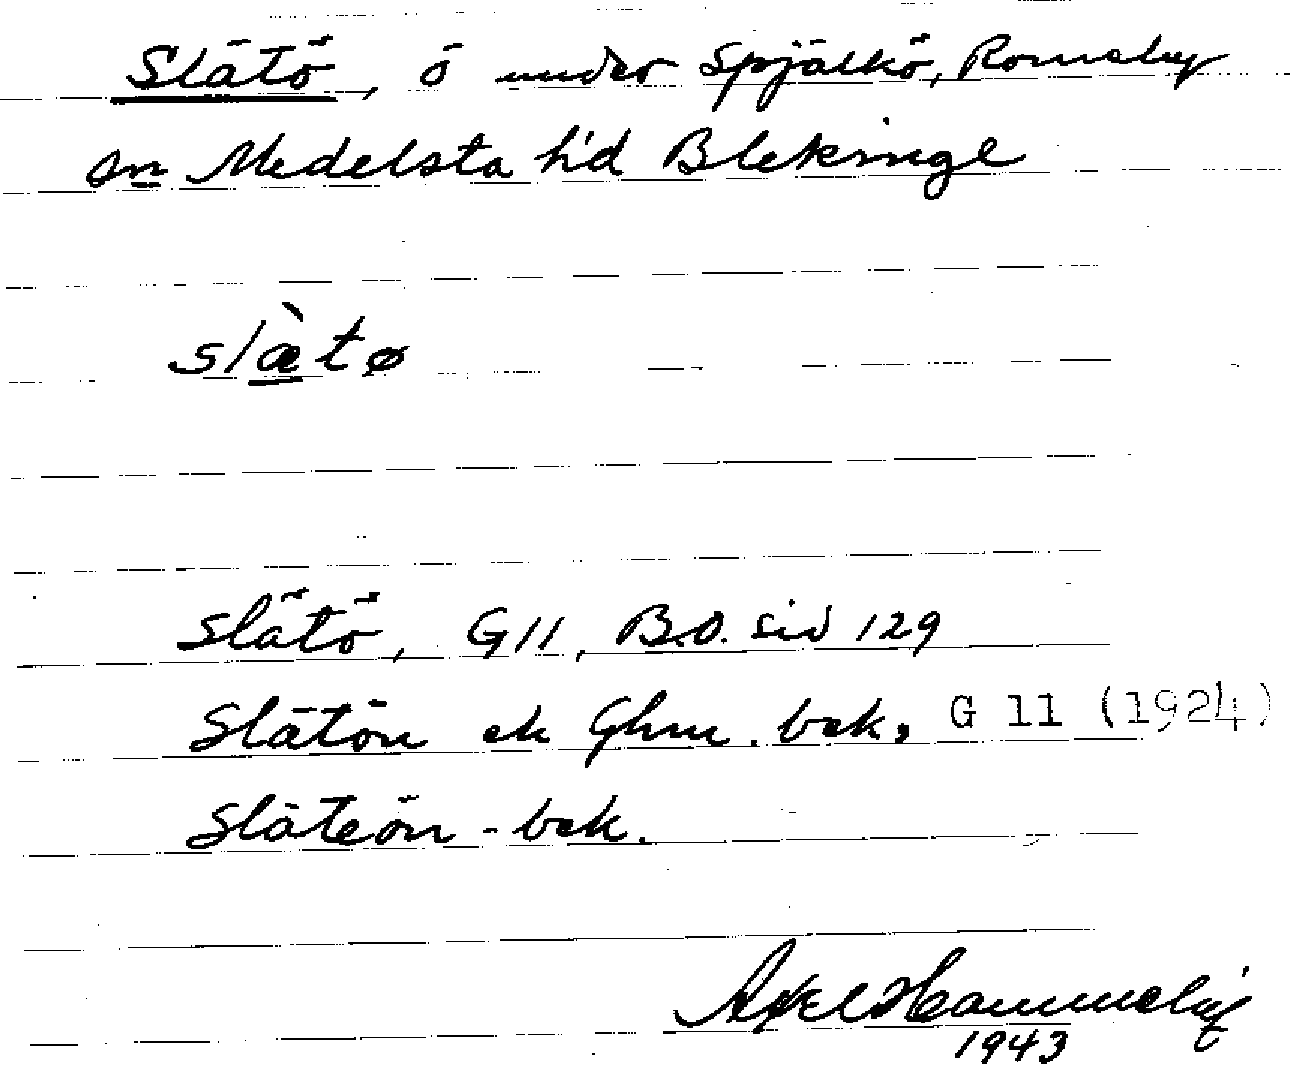 Slätö, ö under Spjälkö, Romeby
sn Medelsta h'd Blekinge
slæ̀tø
Slätö, G11, B.O. sid 129
Slätön ek Ghm. bek, G 11 (1924)
Släteön - bek.
Axel
1943